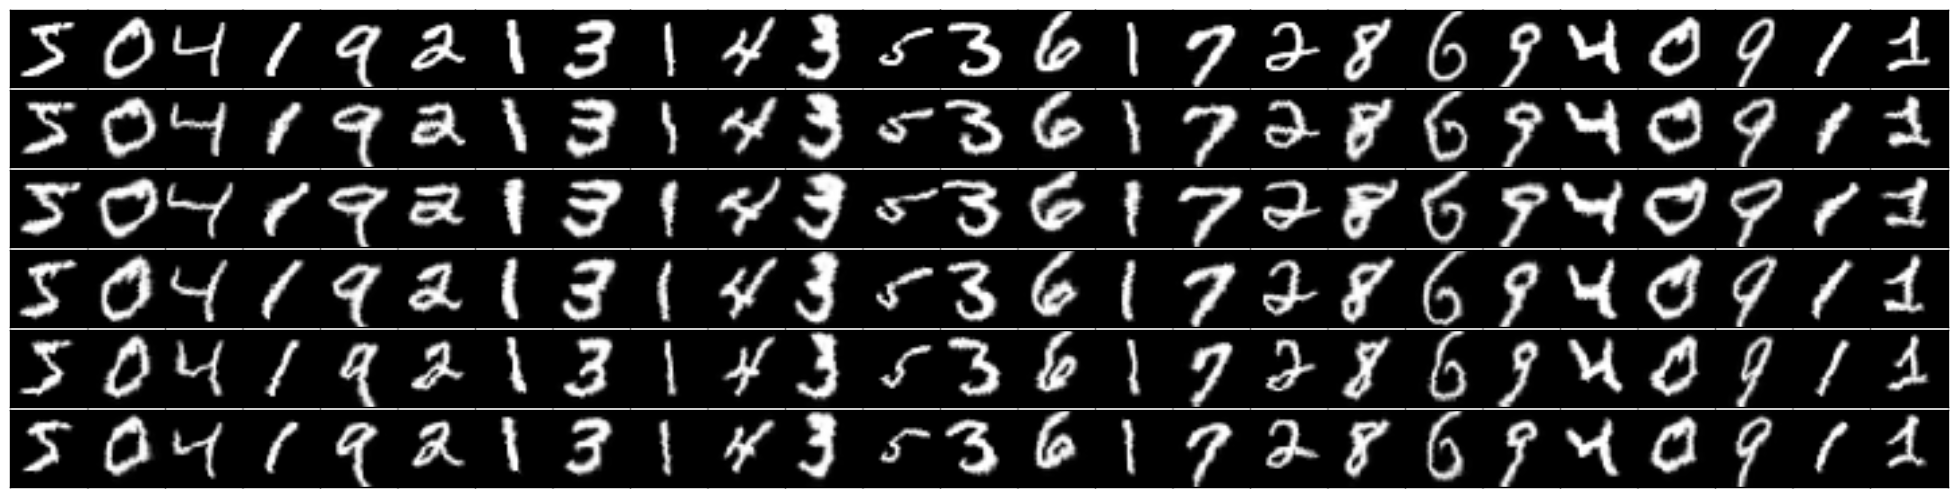 5 0 4 1 9 2 1 3 1 4 3 5 3 6 1 7 2 8 6 9 4 0 9 1 1
5 0 4 1 9 2 1 3 1 4 3 5 3 6 1 7 2 8 6 9 4 0 9 1 1
5 0 4 1 9 2 1 3 1 4 3 5 3 6 1 7 2 8 6 9 4 0 9 1 1
5 0 4 1 9 2 1 3 1 4 3 5 3 6 1 7 2 8 6 9 4 0 9 1 1
5 0 4 1 9 2 1 3 1 4 3 5 3 6 1 7 2 8 6 9 4 0 9 1 1
5 0 4 1 9 2 1 3 1 4 3 5 3 6 1 7 2 8 6 9 4 0 9 1 1